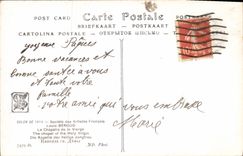 POST CARD Carte Postale POSTKARTE
BRIEFKAART - POSTKAART
CARTOLINA POSTALE - ОТКРЫТОЕ ПИСЬМО
Joyeuses Pâques
Bonne vacances et
bonne santée à vous
et toute votre
famille
votre amie qui vous embrasse
Marie
SALON DE 1912 - Société des Artistes Français
Louis BÉROUD
La Chapelle de la Vierge
The chapel of the Holy Virgin
Die Kapelle der heiligen Jungfrau
ND. Phot.